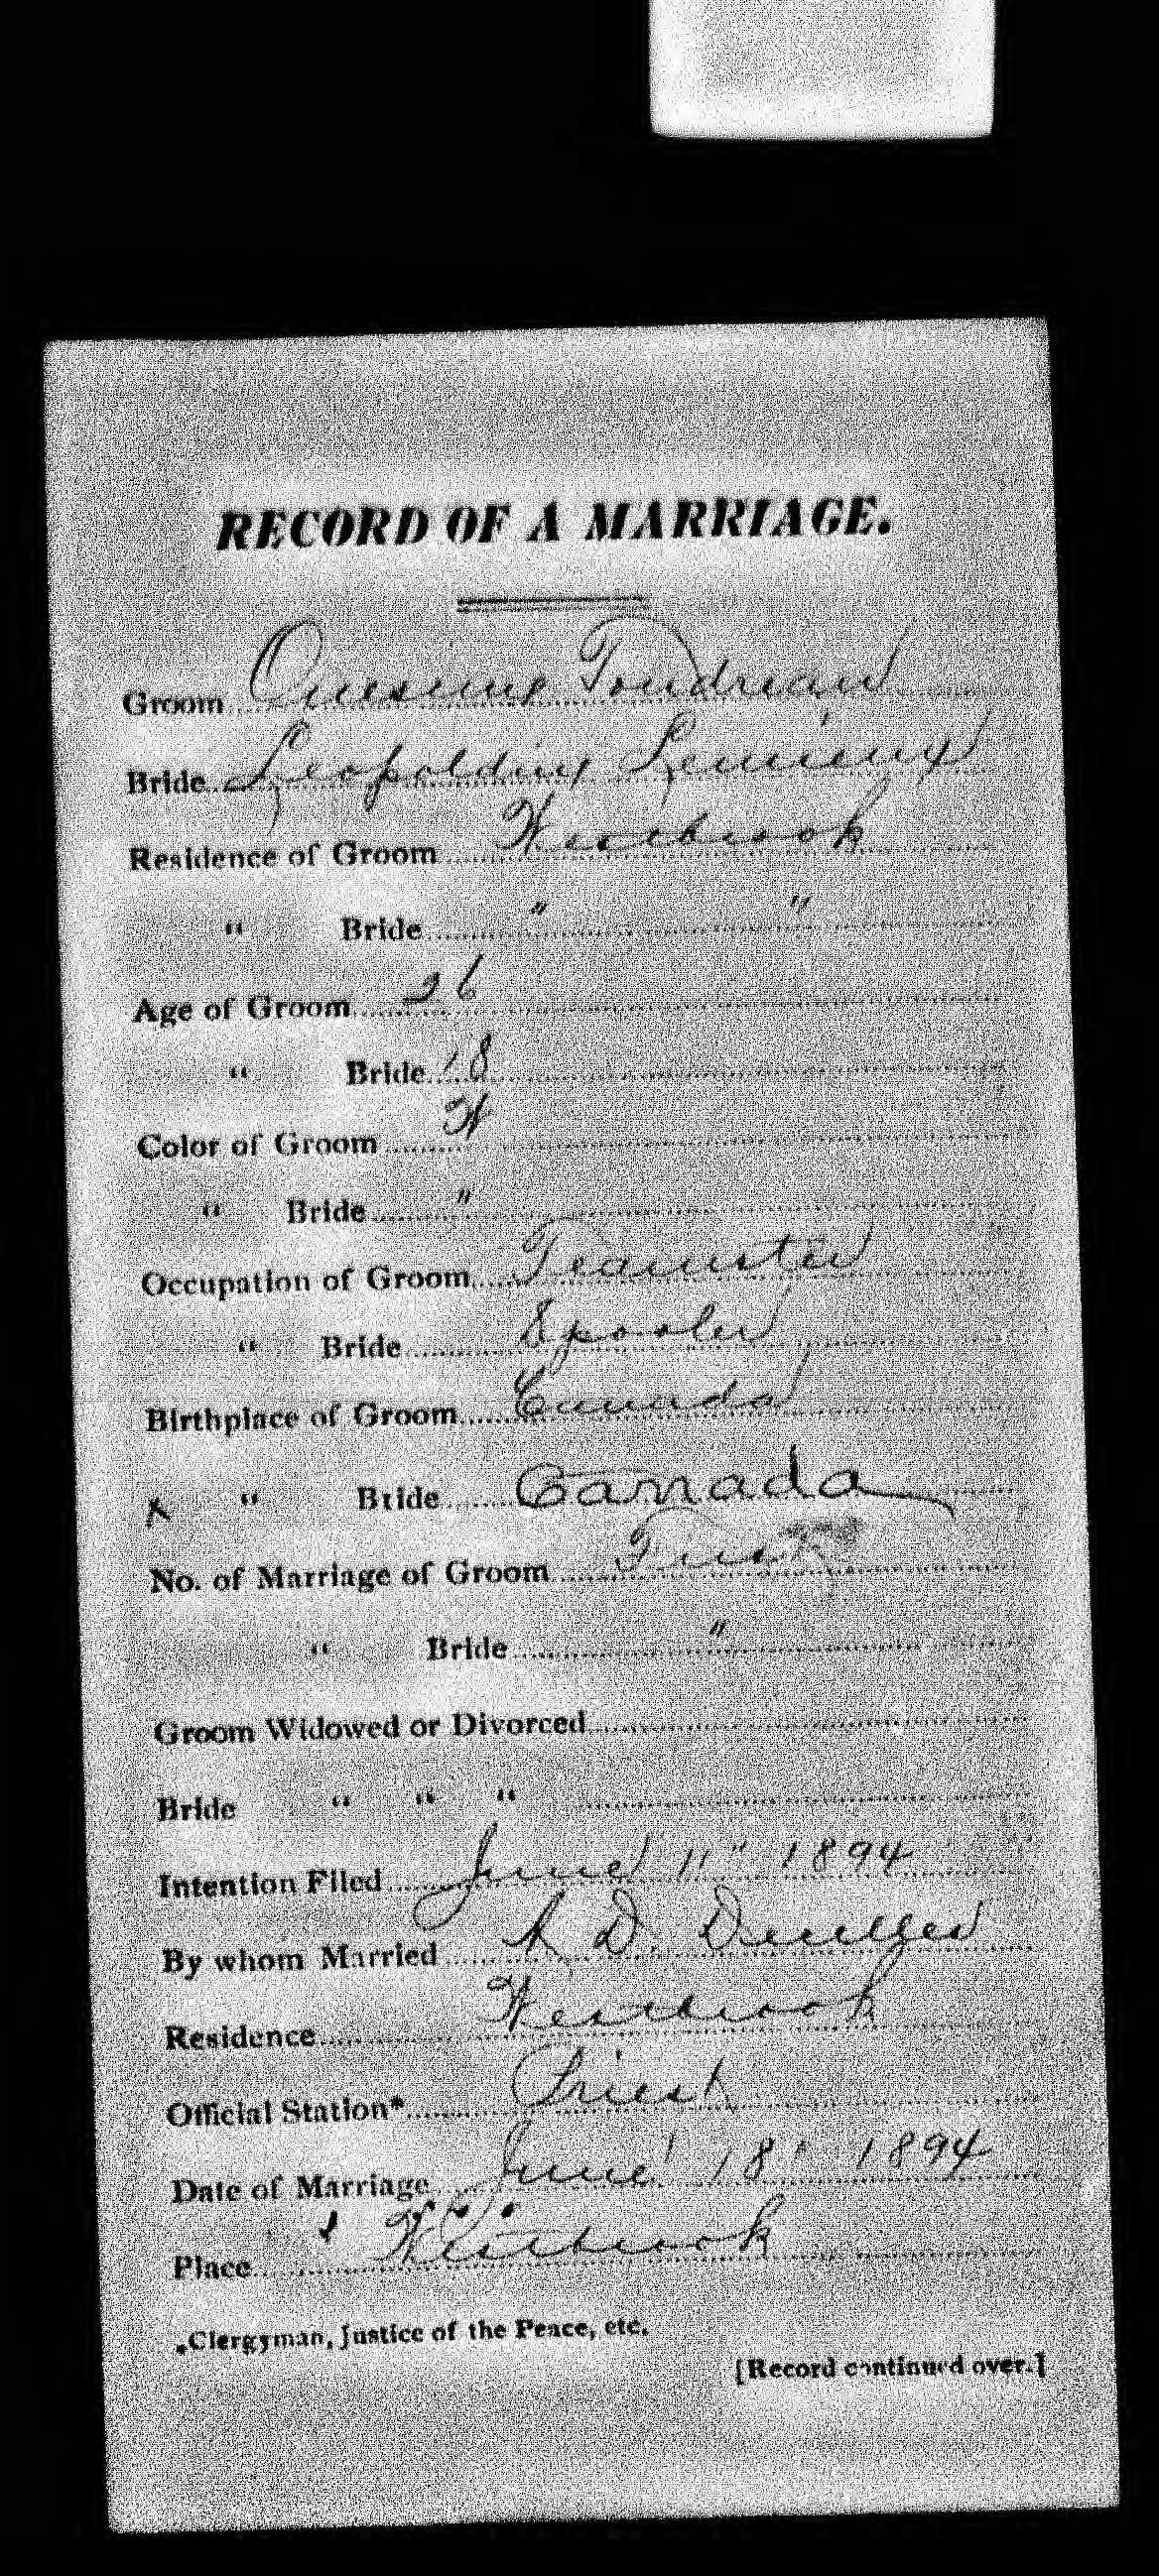 RECORD OF A MARRIAGE.
Groom Onesime Toudreau
Bride Leopoldine Lemieux
Residence of Groom Westbrook
" Bride " "
Age of Groom 26
" Bride 18
Color of Groom W
" Bride "
Occupation of Groom Teamster
" Bride Spooler
Birthplace of Groom Canada
X " Bride Canada
No. of Marriage of Groom First
" Bride "
Groom Widowed or Divorced
Bride " " "
Intention Filed June 11" 1894
By whom Married A D. Decelles
Residence Westbrook
Official Station* Priest
Date of Marriage June 18 1894
Place Westbrook
*Clergyman, Justice of the Peace, etc.
[Record continued over.]